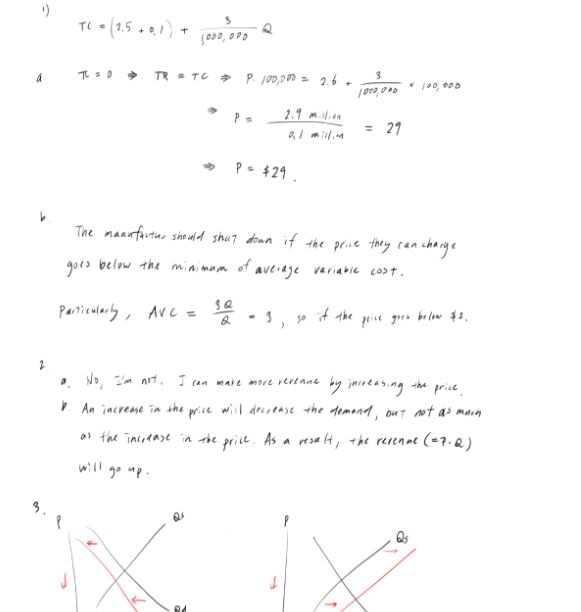 1)
TC = (2.5 + 0.1) + 3/1,000,000 Q
a π = 0 ⇒ TR = TC ⇒ P. 100,000 = 2.6 + 3/1,000,000 × 100,000
⇒ P = 2.9 million / 0.1 million = 29
⇒ P = $29.
b.
The manufactur should shut down if the price they can charge
goes below the minimum of average variable cost.
Particularly, AVC = 3Q/Q = 3, so if the price goes below $3.
2
a. No, I'm not. I can make more revenue by increasing the price.
b. An increase in the price will decrease the demand, but not as much
as the increase in the price. As a result, the revenue (=P.Q)
will go up.
3.
P Qs P Qs
Qd